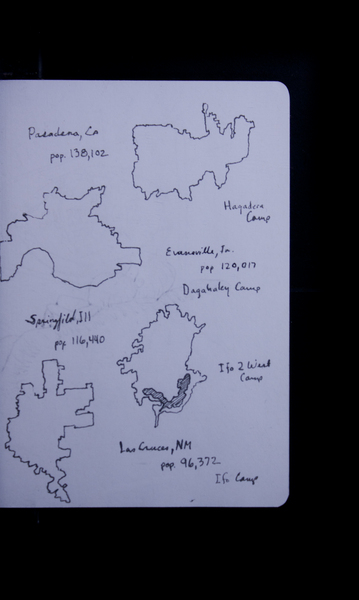 Pasadena, Ca
pop. 138,102
Hagadera
Camp
Evansville, In.
pop 120,017
Dagahaley Camp
Springfield, Ill
pop. 116,440
Ifo 2 West
Camp
Las Cruces, NM
pop. 96,372
Ifo Camp